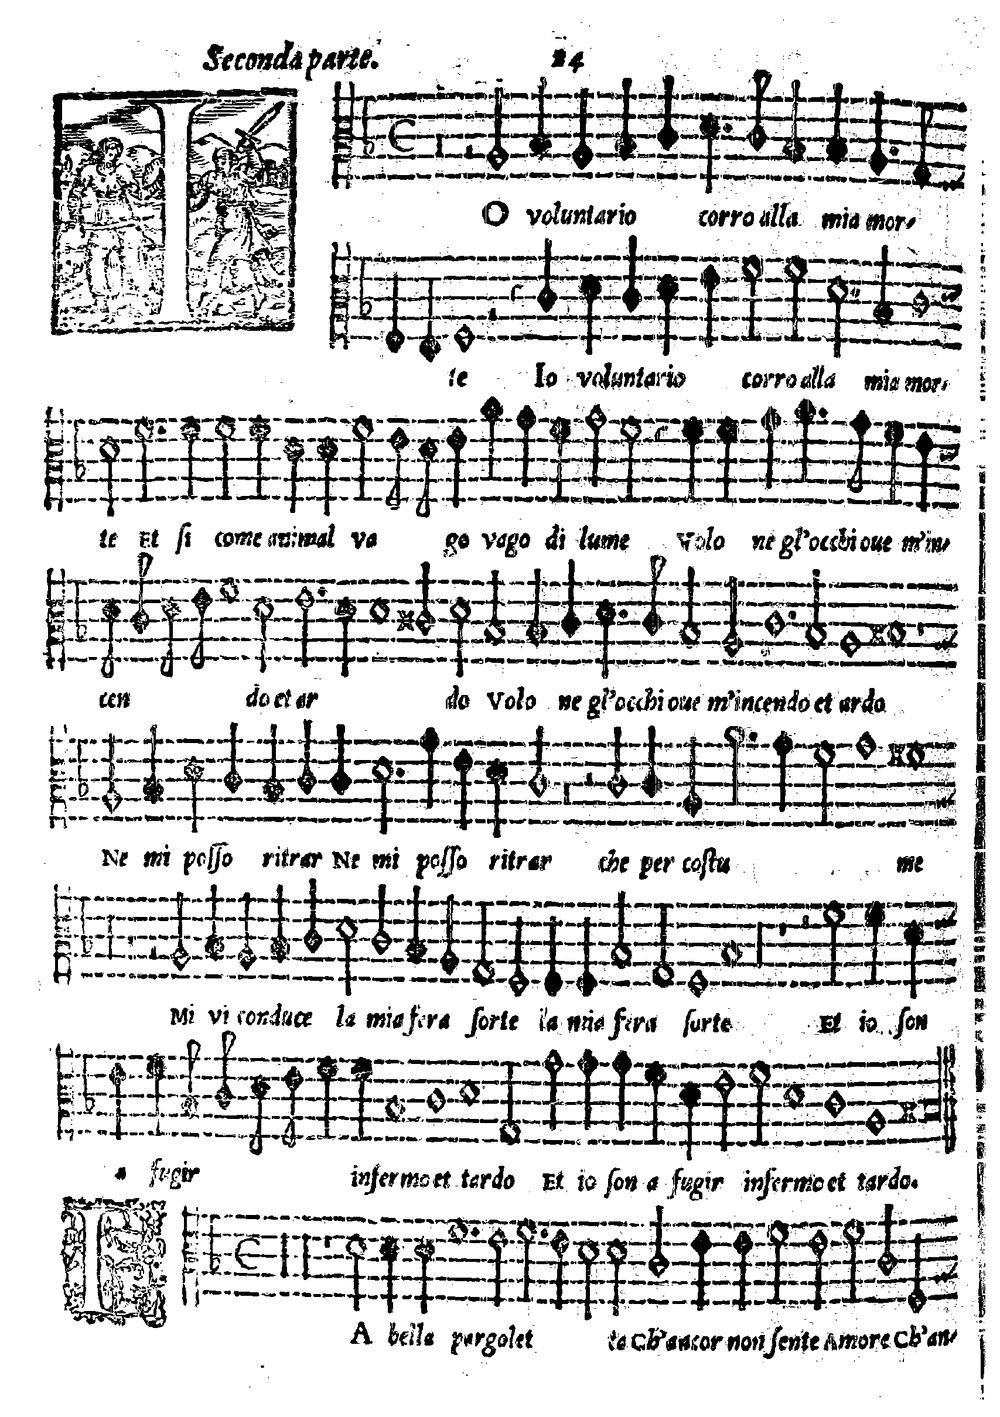 Seconda parte. 24
I O voluntario corro alla mia mor-
te Io voluntario corro alla mia mor-
te Et si come animal va go vago di lume Volo ne gl'occhi oue m'in-
cen do et ar do Volo ne gl'occhi oue m'incendo et ardo
Ne mi posso ritrar Ne mi posso ritrar che per costu me
Mi vi conduce la mia fera sorte la mia fera sorte Et io son
a fugir infermo et tardo Et io son a fugir infermo et tardo.
L A bella pargolet ta Ch'ancor non sente Amore Ch'an-